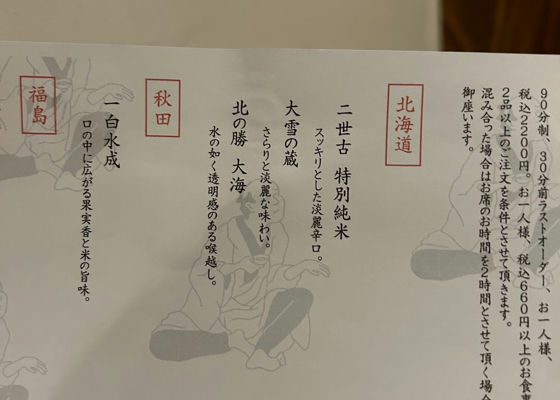 90分制、30分前ラストオーダー、お一人様、
税込2200円。お一人様、税込660円以上のお食事
2品以上のご注文を条件とさせて頂きます。
混み合った場合はお席のお時間を2時間とさせて頂く場合
御座います。
北海道
二世古 特別純米
スッキリとした淡麗辛口。
大雪の蔵
さらりと淡麗な味わい。
北の勝 大海
水の如く透明感のある喉越し。
秋田
一白水成
口の中に広がる果実香と米の旨味。
福島